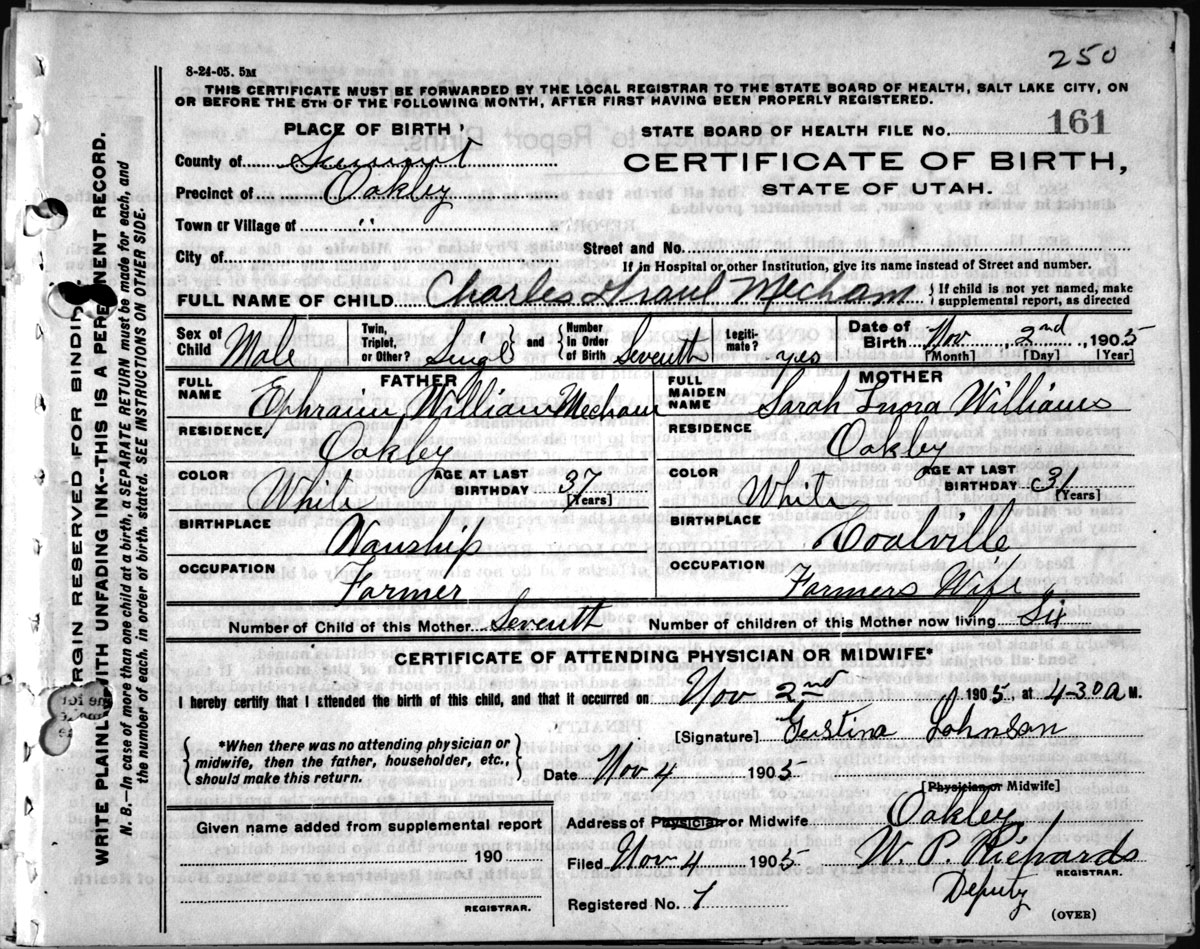 250
8-24-05. 5M
THIS CERTIFICATE MUST BE FORWARDED BY THE LOCAL REGISTRAR TO THE STATE BOARD OF HEALTH, SALT LAKE CITY, ON
OR BEFORE THE 5TH OF THE FOLLOWING MONTH, AFTER FIRST HAVING BEEN PROPERLY REGISTERED.
PLACE OF BIRTH
STATE BOARD OF HEALTH FILE No. 161
County of Summit
CERTIFICATE OF BIRTH,
Precinct of Oakley
STATE OF UTAH.
Town or Village of "
Street and No.
City of
If in Hospital or other Institution, give its name instead of Street and number.
FULL NAME OF CHILD Charles Mecham { If child is not yet named, make
supplemental report, as directed
Sex of Child Male Twin, Triplet, or Other? Singl } and { Number in Order of Birth Seventh Legiti- mate? yes Date of Birth Nov 2nd, 1905
[Month] [Day] [Year]
FATHER
FULL NAME Ephraim William Mecham
MOTHER
FULL MAIDEN NAME Sarah Inora Williams
RESIDENCE Oakley
RESIDENCE Oakley
COLOR White AGE AT LAST BIRTHDAY 37 [Years]
COLOR White AGE AT LAST BIRTHDAY 31 [Years]
BIRTHPLACE Wanship
BIRTHPLACE Coalville
OCCUPATION Farmer
OCCUPATION Farmers Wife
Number of Child of this Mother Seventh Number of children of this Mother now living Six
CERTIFICATE OF ATTENDING PHYSICIAN OR MIDWIFE*
I hereby certify that I attended the birth of this child, and that it occurred on Nov 2nd, 1905. at 4-30 A M.
[Signature] Gustina Johnson
{ *When there was no attending physician or
midwife, then the father, householder, etc.,
should make this return. }
Date Nov 4 1905
[Physician or Midwife]
Given name added from supplemental report
190
REGISTRAR.
Address of Physician or Midwife Oakley
Filed Nov 4 1905 W. P. Richards
REGISTRAR.
Deputy
Registered No. 1
(OVER)
MARGIN RESERVED FOR BINDING.
WRITE PLAINLY WITH UNFADING INK--THIS IS A PERMANENT RECORD.
N. B.--In case of more than one child at a birth, a SEPARATE RETURN must be made for each, and
the number of each, in order of birth, stated. SEE INSTRUCTIONS ON OTHER SIDE.